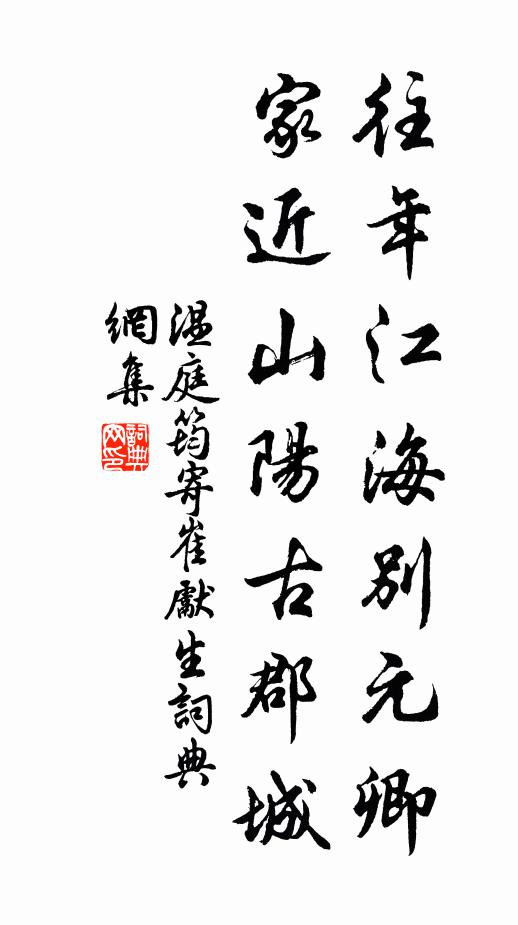 往年江海別元卿
家近山陽古郡城
溫庭筠寄崔獻生詞典
網集
詞典
网印